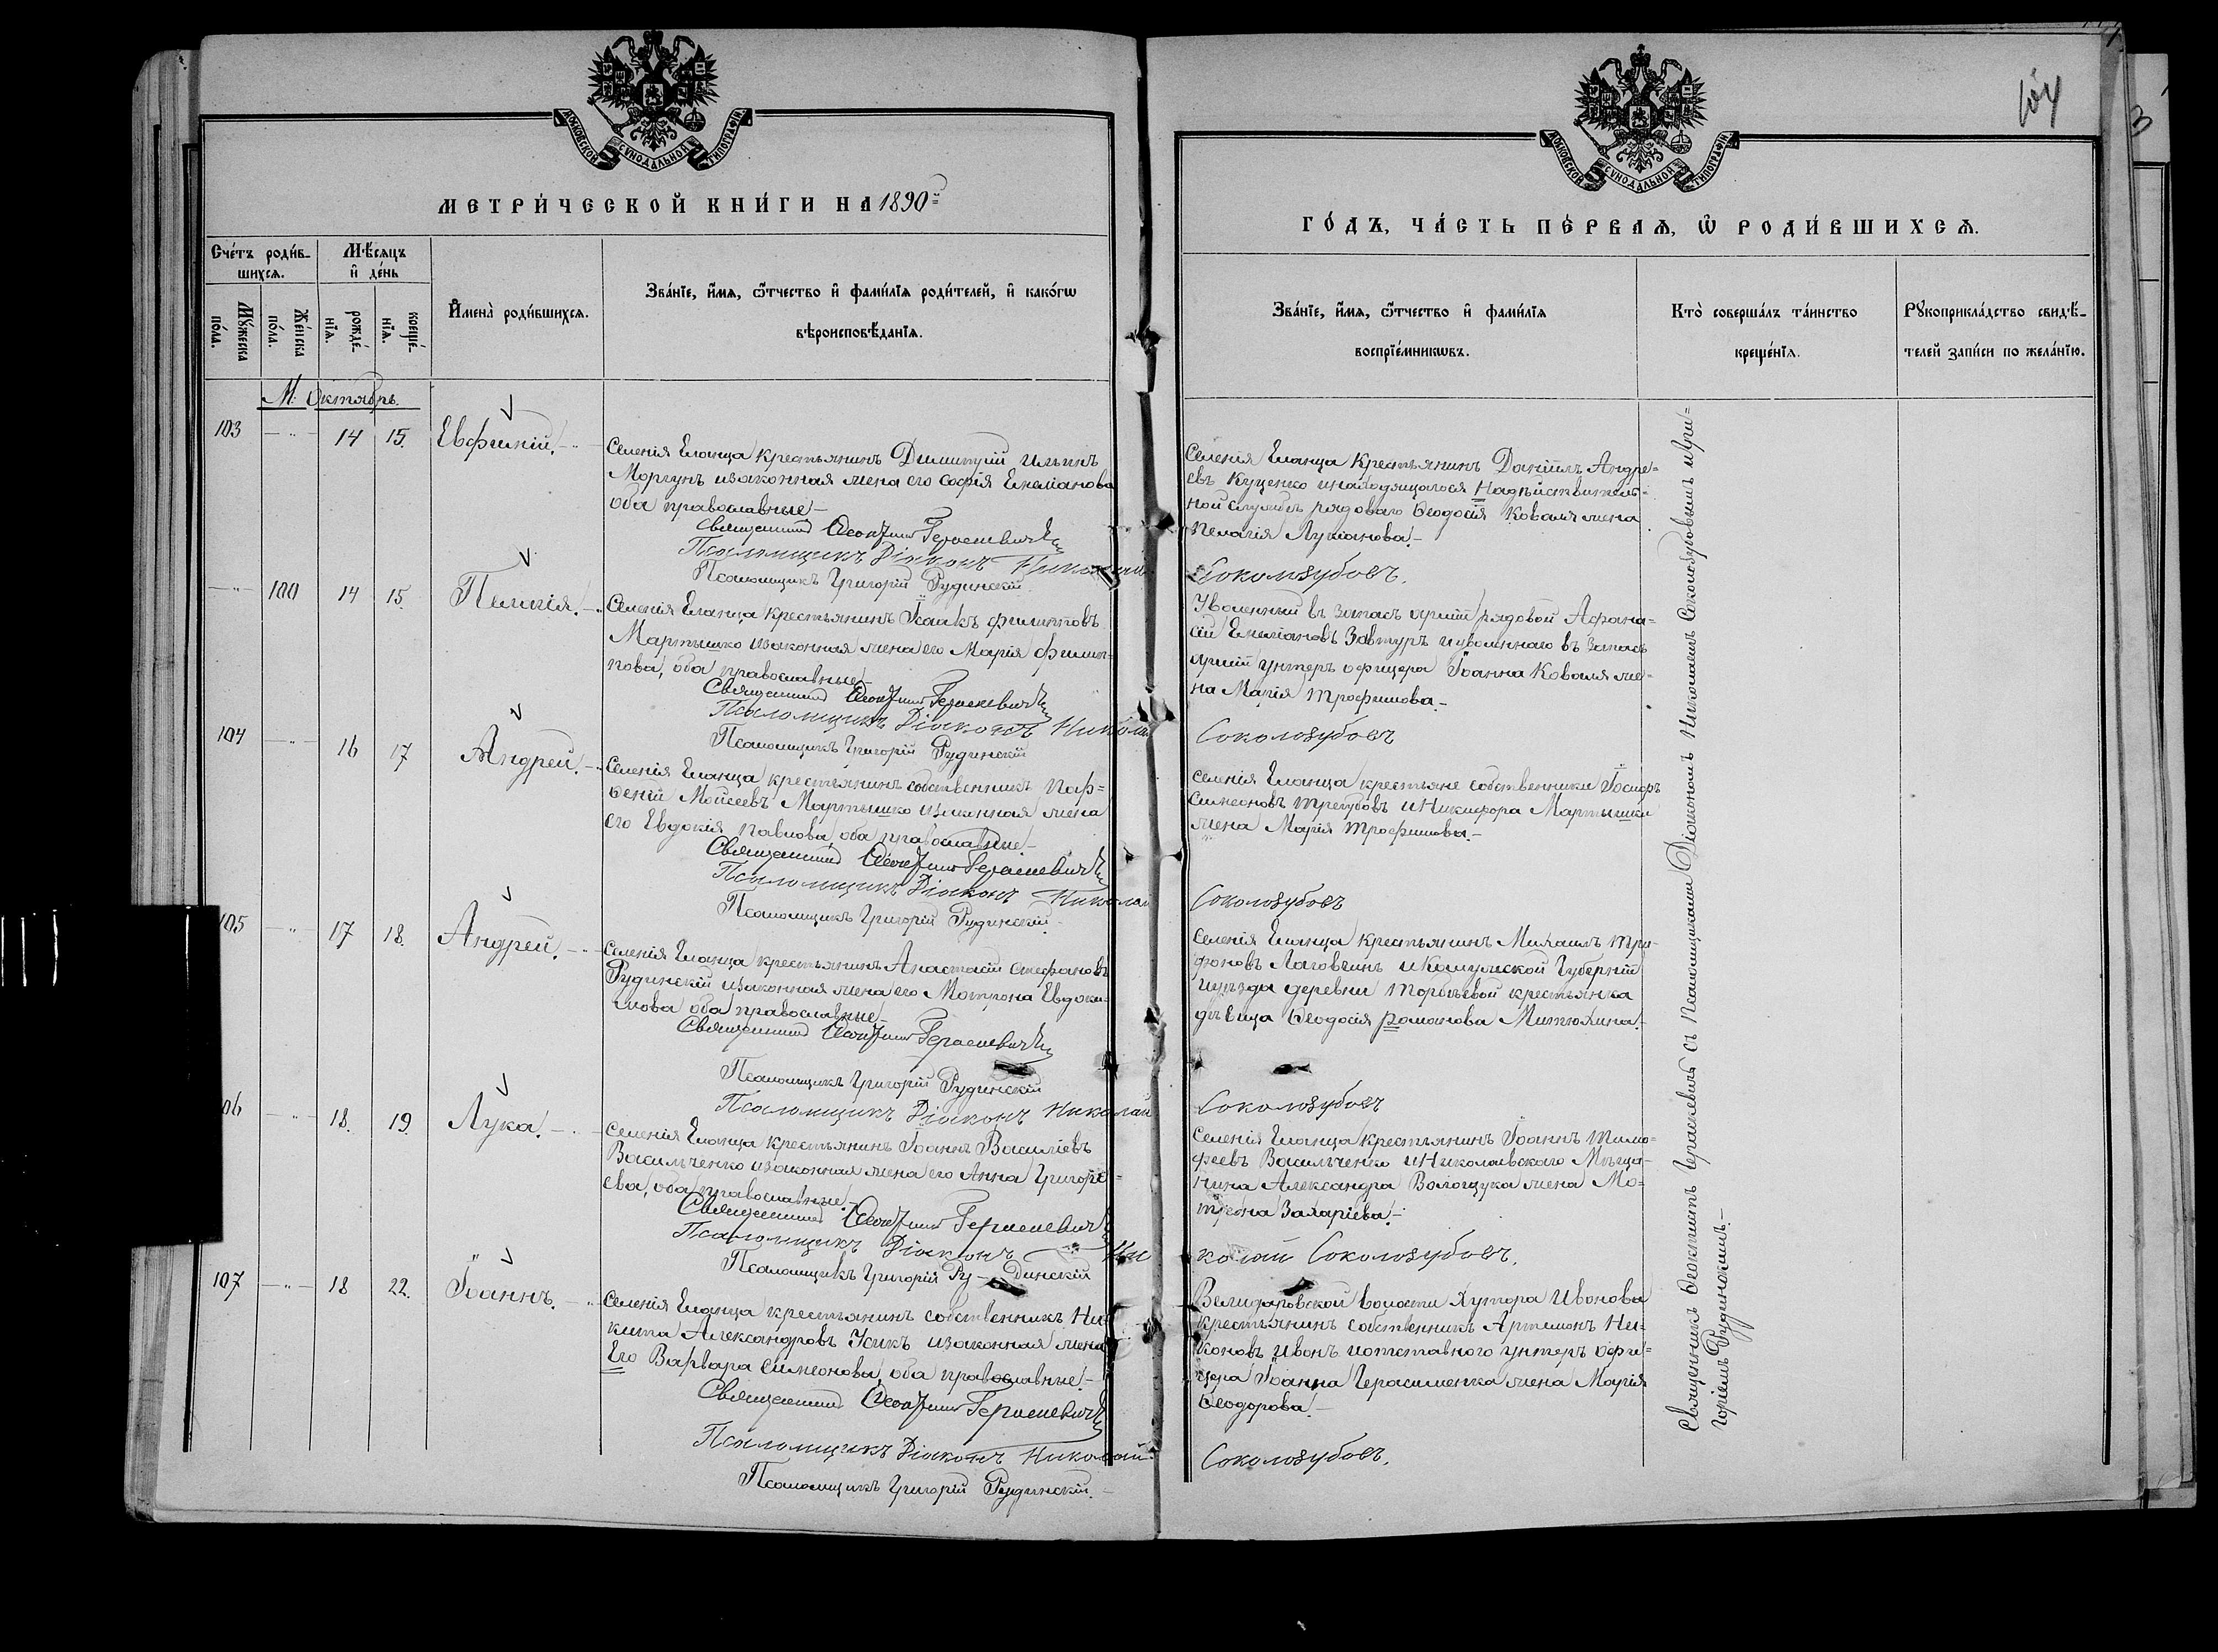 МОСКОВСКОЙ СУНОДАЛЬНОЙ ТИПОГРАФІИ
МЕТРИ́ЧЕСКОЙ КНИ́ГИ НА 1890й
Сче́тъ роди́в-
шихсѧ.
Мѣ́сѧцъ
и҆ де́нь
Мꙋ́жеска
по́ла.
Же́нска
по́ла.
рожде́-
нїѧ.
креще́-
нїѧ.
И҆мена̀ роди́вшихсѧ.
Зва́нїе, и҆́мѧ, ѻ҆́тчество и҆ фами́лїѧ роди́телей, и҆ како́гѡ
вѣроисповѣ́данїѧ.
М. Октябрь.
103 — " — 14 15. Евфимій. —
Селенія Еланца крестьянинъ Димитрій Ильинъ
Моргунъ изаконная жена его Софія Емеліанова
оба православные —
Священникъ Ѳеоктистъ Герасиевичъ
Псаломщикъ Діаконъ Николай
Псаломщикъ Григорій Рудинскій
— " — 100 14 15. Пелагія. —
Селенія Еланца крестьянинъ Іоаикъ Филипповъ
Мартышко изаконная жена его Марія Филип=
пова, оба православные —
Священникъ Ѳеоктистъ Герасиевичъ
Псаломщикъ Діаконъ Николай
Псаломщикъ Григорій Рудинскій
104 — " — 16 17 Андрей. —
Селенія Еланца крестьянинъ собственникъ Пар=
ѳеній Моисеевъ Мартышко изаконная жена
его Евдокія Павлова, оба православные —
Священникъ Ѳеоктистъ Герасиевичъ
Псаломщикъ Діаконъ Николай
Псаломщикъ Григорій Рудинскій.
105 — " — 17 18. Андрей. —
Селенія Еланца крестьянинъ Анастасій Стефановъ
Рудинскій изаконная жена его Матрона Евдоки-
мова оба православные —
Священникъ Ѳеоктистъ Герасиевичъ
Псаломщикъ Григорій Рудинскій
Псаломщикъ Діаконъ Николай
06 — " — 18. 19. Лука. —
Селенія Еланца крестьянинъ Іоаннъ Василіевъ
Васильченко изаконная жена его Анна Григорі=
ева, оба православные —
Священникъ Ѳеоктистъ Герасиевичъ
Псаломщикъ Діаконъ Ни
Псаломщикъ Григорій Ру — динскій
107 — " — 18 22. Іоаннъ. —
Селенія Еланца крестьянинъ собственникъ Ни=
кита Александровъ Усикъ изаконная жена
Его Варвара Симеонова, оба православные —
Священникъ Ѳеоктистъ Герасиевичъ
Псаломщикъ Діаконъ Николай
Псаломщикъ Григорій Рудинскій. —
МОСКОВСКОЙ СУНОДАЛЬНОЙ ТИПОГРАФІИ
ГО́ДЪ, ЧА́СТЬ ПЕ́РВАѦ, Ѡ҆ РОДИ́ВШИХСѦ.
Зва́нїе, и҆́мѧ, ѻ҆́тчество и҆ фами́лїѧ
воспрїе́мникѡвъ.
Кто̀ соверша́лъ та́инство
креще́нїѧ.
Рꙋкоприкла́дство свидѣ́-
телей за́писи по жела́нїю.
Селенія Еланца Крестьянинъ Даніилъ Андре=
евъ Куценко инаходящагося Надѣйствитель=
ной службѣ рядоваго Ѳеодосія Коваля жена
Пелагія Лукіанова. —
Соколозубовъ.
Уволенный въ запасъ арміи рядовой Афана=
сій Емеліановъ Завтуръ иуволеннаго въ запасъ
арміи унтеръ офицера Іоанна Коваля же=
на Марія Трофимова. —
Соколозубовъ
Селенія Еланца крестьяне собственники Іосифъ
Симеоновъ Трегубовъ иНикифора Мартышки
жена Марія Трофимова. —
Соколозубовъ
Селенія Еланца крестьянинъ Михаилъ Три-
фоновъ Логовчинъ иКалужской Губерніи
иуѣзда деревни Торбѣевой крестьянка
дѣвица Ѳеодосія Романова Митюхина. —
Соколозубовъ
Селенія Еланца крестьянинъ Іоаннъ Тимо=
феевъ Васильченко иНиколаевскаго Мѣща-
нина Александра Волощука жена Ма=
трона Захаріева. —
колай Соколозубовъ.
волости Хутора Иванова
крестьянинъ собственникъ Артемонъ Ни=
коновъ Ивонъ иотставного унтеръ офи=
цера Іоанна Герасименка жена Марія
Ѳеодорова. —
Соколозубовъ.
Священникъ Ѳеоктистъ Герасиевичъ съ Псаломщиками Діакономъ Николаемъ Соколозубовымъ иГри=
горіемъ Рудинскимъ. —